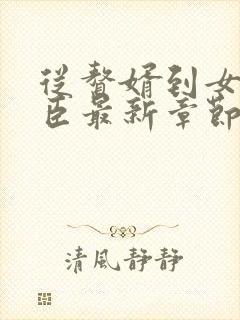 從贅婿到女
臣最新章節
清風靜靜